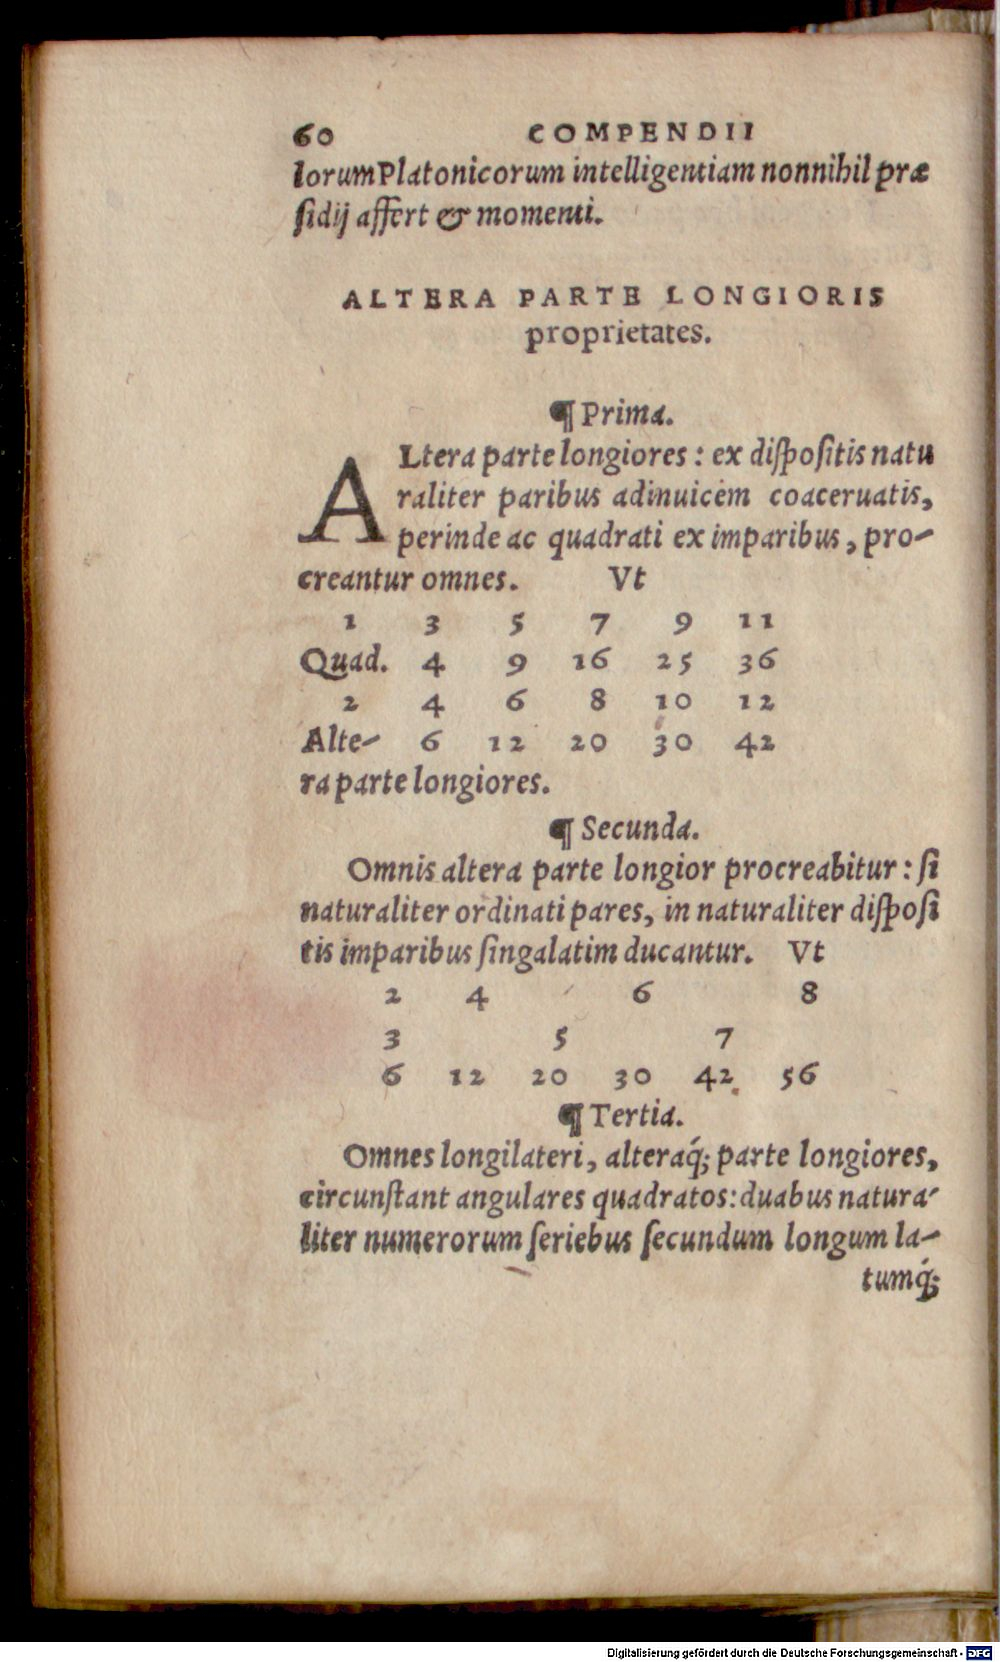 60 COMPENDII
lorum Platonicorum intelligentiam nonnihil præ
ſidij affert & momenti.
ALTERA PARTE LONGIORIS
proprietates.
¶ Prima.
ALtera parte longiores : ex diſpoſitis natu
raliter paribus adinuicem coaceruatis,
perinde ac quadrati ex imparibus, pro-
creantur omnes. Vt
1 3 5 7 9 11
Quad. 4 9 16 25 36
2 4 6 8 10 12
Alte- 6 12 20 30 42
ra parte longiores.
¶ Secunda.
Omnis altera parte longior procreabitur : ſi
naturaliter ordinati pares, in naturaliter diſpoſi
tis imparibus ſingalatim ducantur. Vt
2 4 6 8
3 5 7
6 12 20 30 42 56
¶ Tertia.
Omnes longilateri, alteraq́; parte longiores,
circunſtant angulares quadratos: duabus natura-
liter numerorum ſeriebus ſecundum longum la-
tumq́;
Digitalisierung gefördert durch die Deutsche Forschungsgemeinschaft - DFG